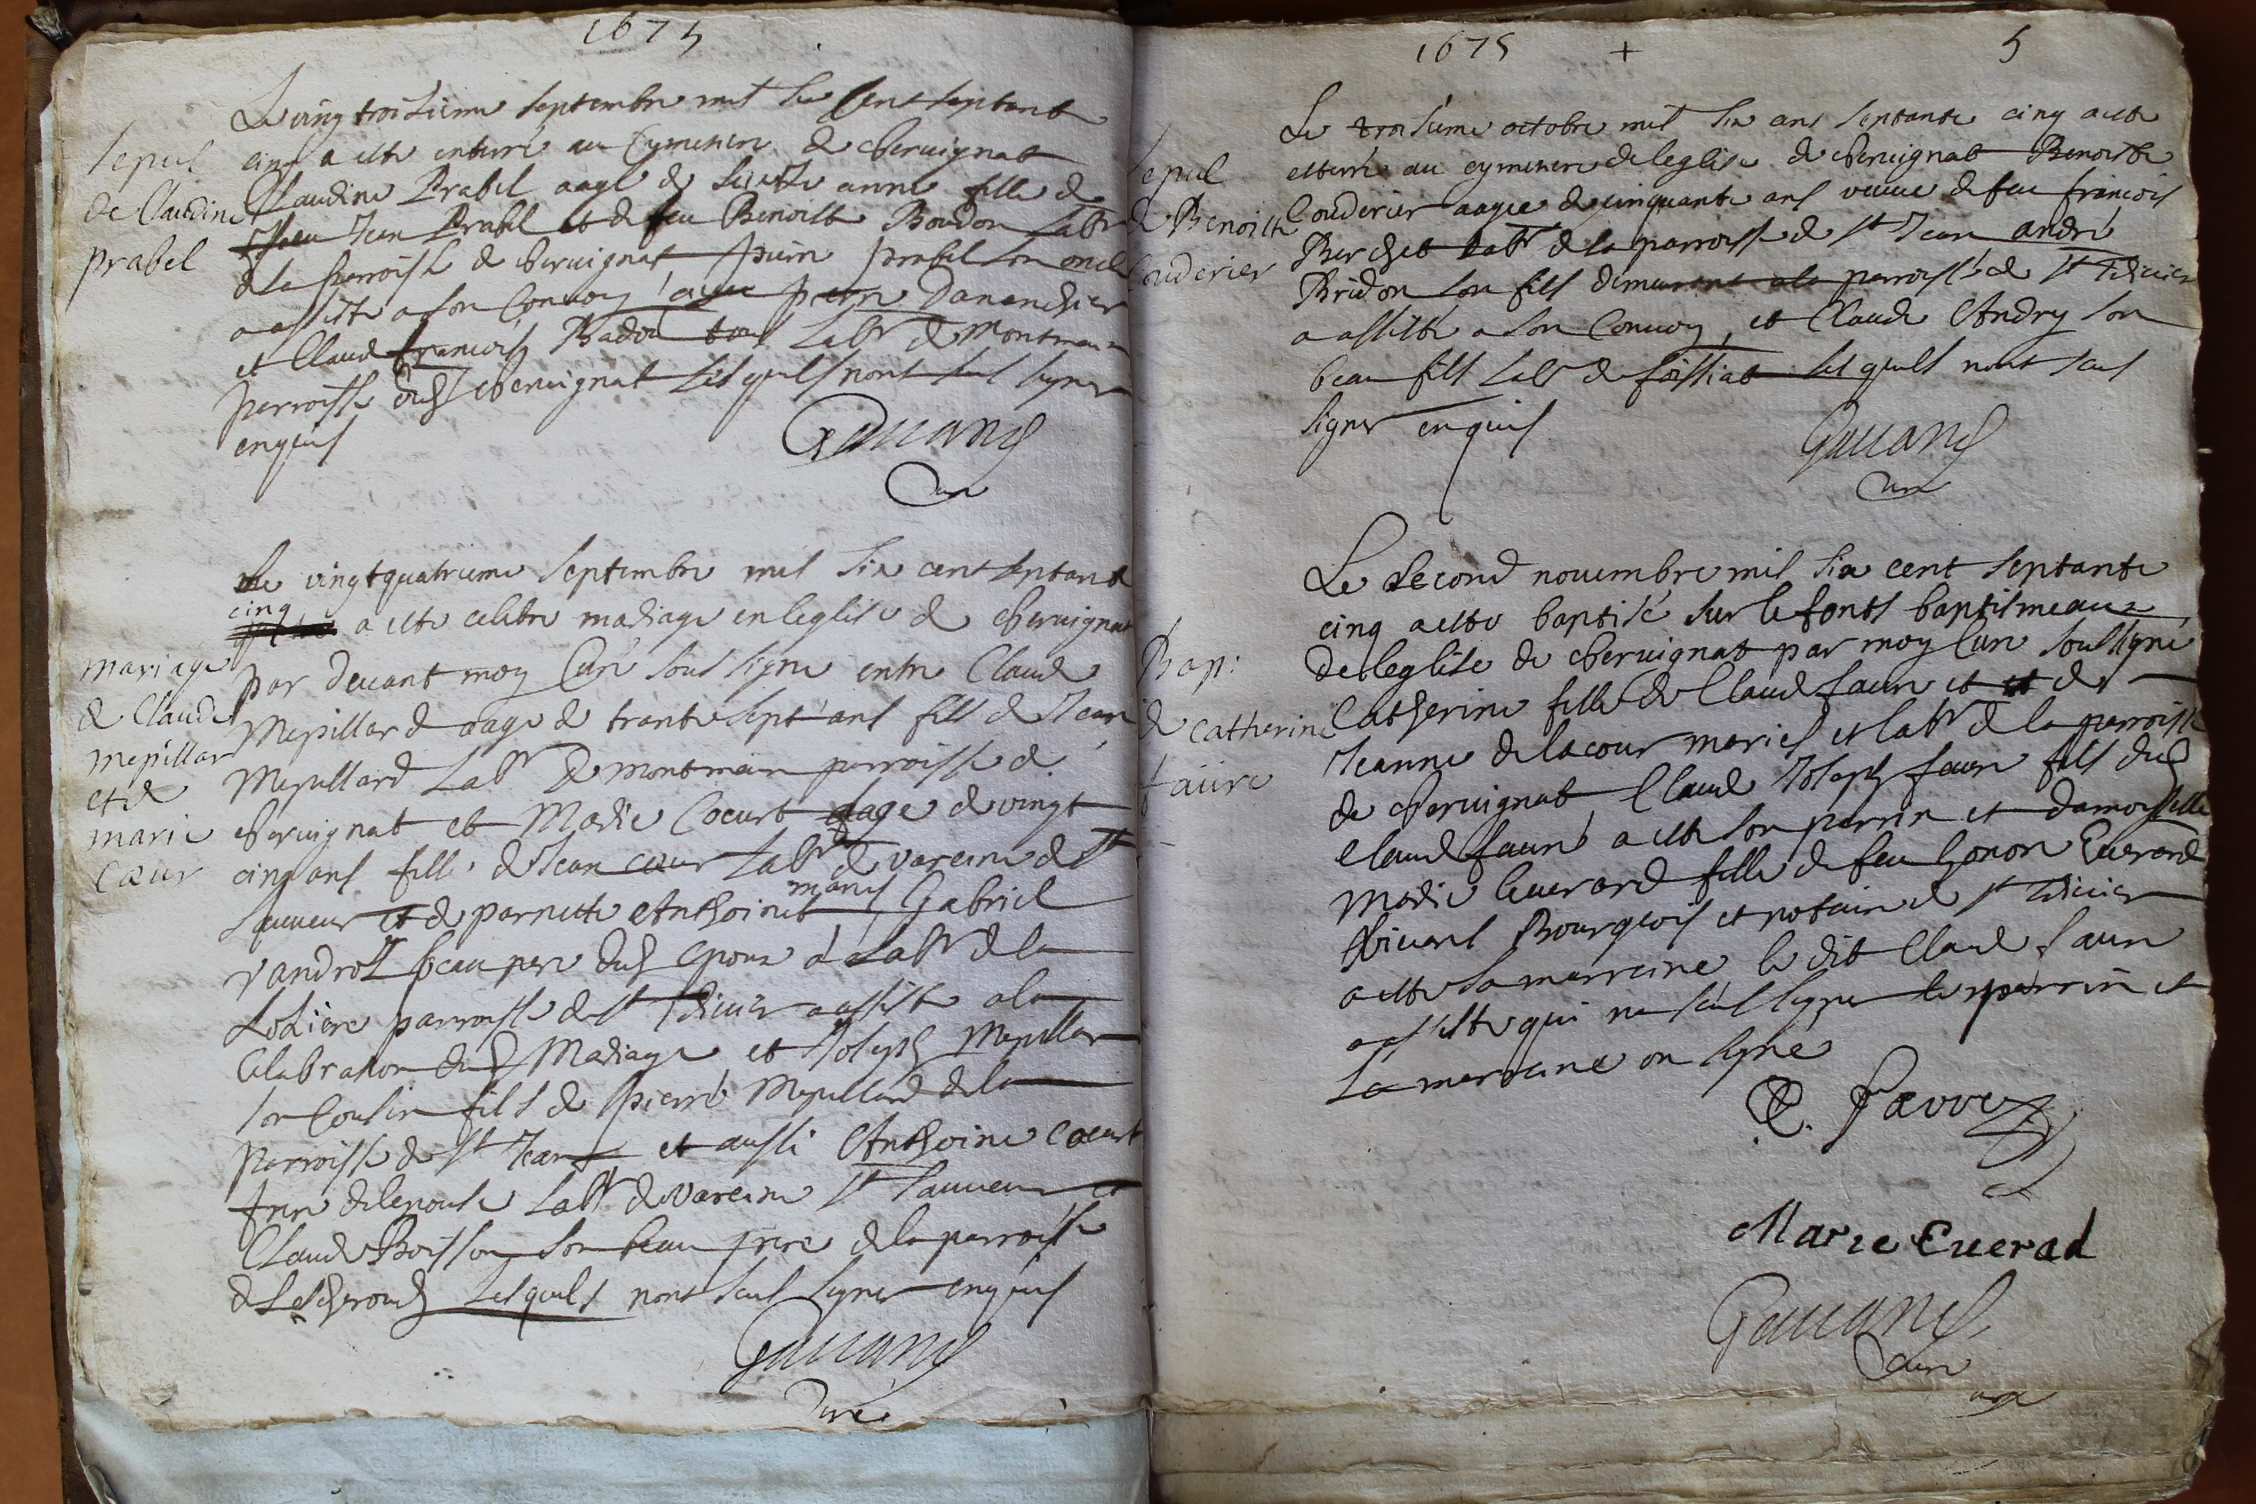 1675
Le vingtroisieme septembre mil six cent septante
cinq a este enterré au Cymetiere de cheruignat
Claudine Prabel aage de sette anne fille de
Jean Prabel et de feu Benoiste Boudon labr
de la parroisse de cheruignat pierre prabel son oncle
a assisté a son Convoy, pierre Dananchier
et Claud francois Badou tous Labr de Montmain
parroisse dud cheruignat lesquels nont seus signer
enquis
Gauand
Cure
sepul
de Claudine
prabel
Le vingtquatrieme septembre mil six cent septante
cinq
a este celebre madiage en leglise de cheruignat
par deuant moy Curé soussigne entre Claude
Mepillard aage de trante sept ans fils de Jean
Mepillard Labr de montmain parroisse de
cheruignat et Madie Coeurt aage de vingt
cinq ans fille de Jean cœur Labr de vareine de St
sauueur et de parnette Anthoinet maries, Gabriel
Vandrost beau pere dud epoux Labr de la
parroisse de St Didier a assisté a la
Celabration dud Madiage et Joseph Mepillar
son Cousin fils de pierre Mepillard de la
parroisse de St Jean et aussi Anthoine Coeurt
frere de lepouse Labr de vareine St sauueur et
Claude Boisson son beau frere de la parroisse
de Lescheroud Lesquels nont seus signer enquis
Gauand
Curé
mariage
de Claude
mepillar
et de
marie
cœur
1675 + 5
Le troisieme octobre mil six ans septante cinq a este
eterré au cymetiere de leglise de cheruignat Benoiste
Couderier aagee de cinquante ans veuue de feu francois
Berchet Labr de la parroisse de St Jean andré
Bridon son fils demurant a la parroisse de St Didier
a assisté a son Convoy, et Claude Andry son
beau fils Labr de foissiat lesquels nont seus
signer enquis
Gauand
Cure
sepul
de Benoiste
Couderier
Le second nouembre mil six cent septante
cinq a este baptisé sur le fonts baptismeaux
de leglise de cheruignat par moy Curé soussigné
Catherine fille de Claud faure et et de
Jeanne de lacour maries et labr de la parroisse
de cheruignat, Claud Joseph faure fils dud
Claud faure a esté son parrin et damoiselle
Madie Euerard fille de feu honor Euerard
viuant Bourgois et notaire de St Didier
a este sa marreine le dit Claud faure
a assiste qui na seus signer le parrin et
La marreine on signé
C. favre
Marie Euerad
Gauand
Cure
Bap:
de catherine
faure